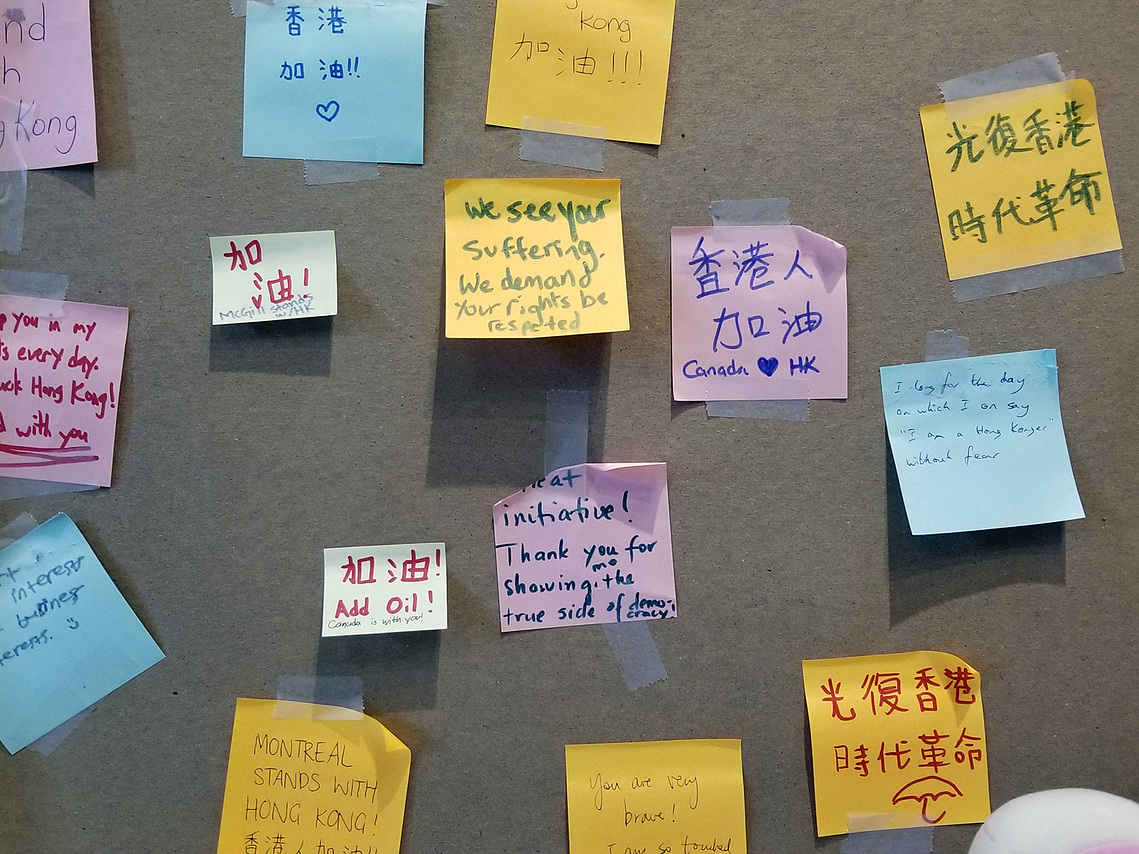 nd
h
g Kong
香港
加油!!
♡
Kong
加油!!!
光復香港
時代革命
加
油!
McGill stands
w/HK
We see your
suffering.
We demand
your rights be
respeted
香港人
加油
Canada ♥ HK
p you in my
s every day.
uck Hong Kong!
with you
I long for the day
on which I can say
"I am a Hong Konger"
without fear
eat
initiative!
Thank you for
showing me the
true side of democracy!
加油!
Add Oil!
Canada is with you!
interest
business
erests. :)
光復香港
時代革命
MONTREAL
STANDS WITH
HONG KONG!
香港人加油!!
You are very
brave!
I am so touched